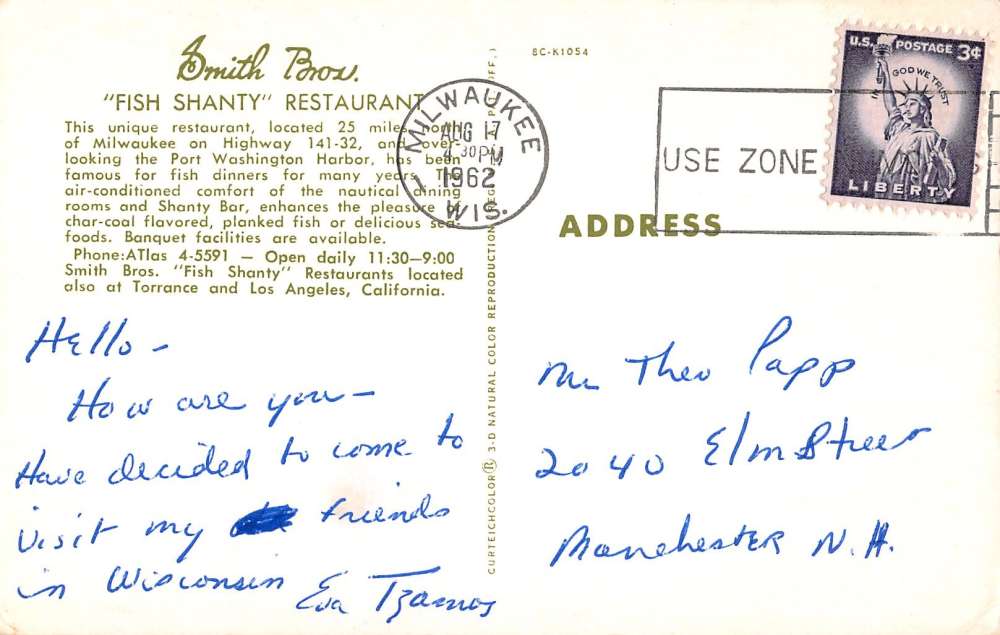 Smith Bros.
"FISH SHANTY" RESTAURANT
This unique restaurant, located 25 miles north
of Milwaukee on Highway 141-32, and over-
looking the Port Washington Harbor, has been
famous for fish dinners for many years. The
air-conditioned comfort of the nautical dining
rooms and Shanty Bar, enhances the pleasure of
char-coal flavored, planked fish or delicious sea-
foods. Banquet facilities are available.
Phone:ATlas 4-5591 — Open daily 11:30—9:00
Smith Bros. "Fish Shanty" Restaurants located
also at Torrance and Los Angeles, California.
Hello -
How are you -
Have decided to come to
visit my friends
in Wisconsin
Eva Tzamos
CURTEICHCOLOR® 3-D NATURAL COLOR REPRODUCTION
8C-K1054
MILWAUKEE
AUG 17
4 30 PM
1962
WIS.
USE ZONE
U.S. POSTAGE 3¢
IN GOD WE TRUST
LIBERTY
ADDRESS
Mr Theo Papp
2040 Elm Street
Manchester N.H.